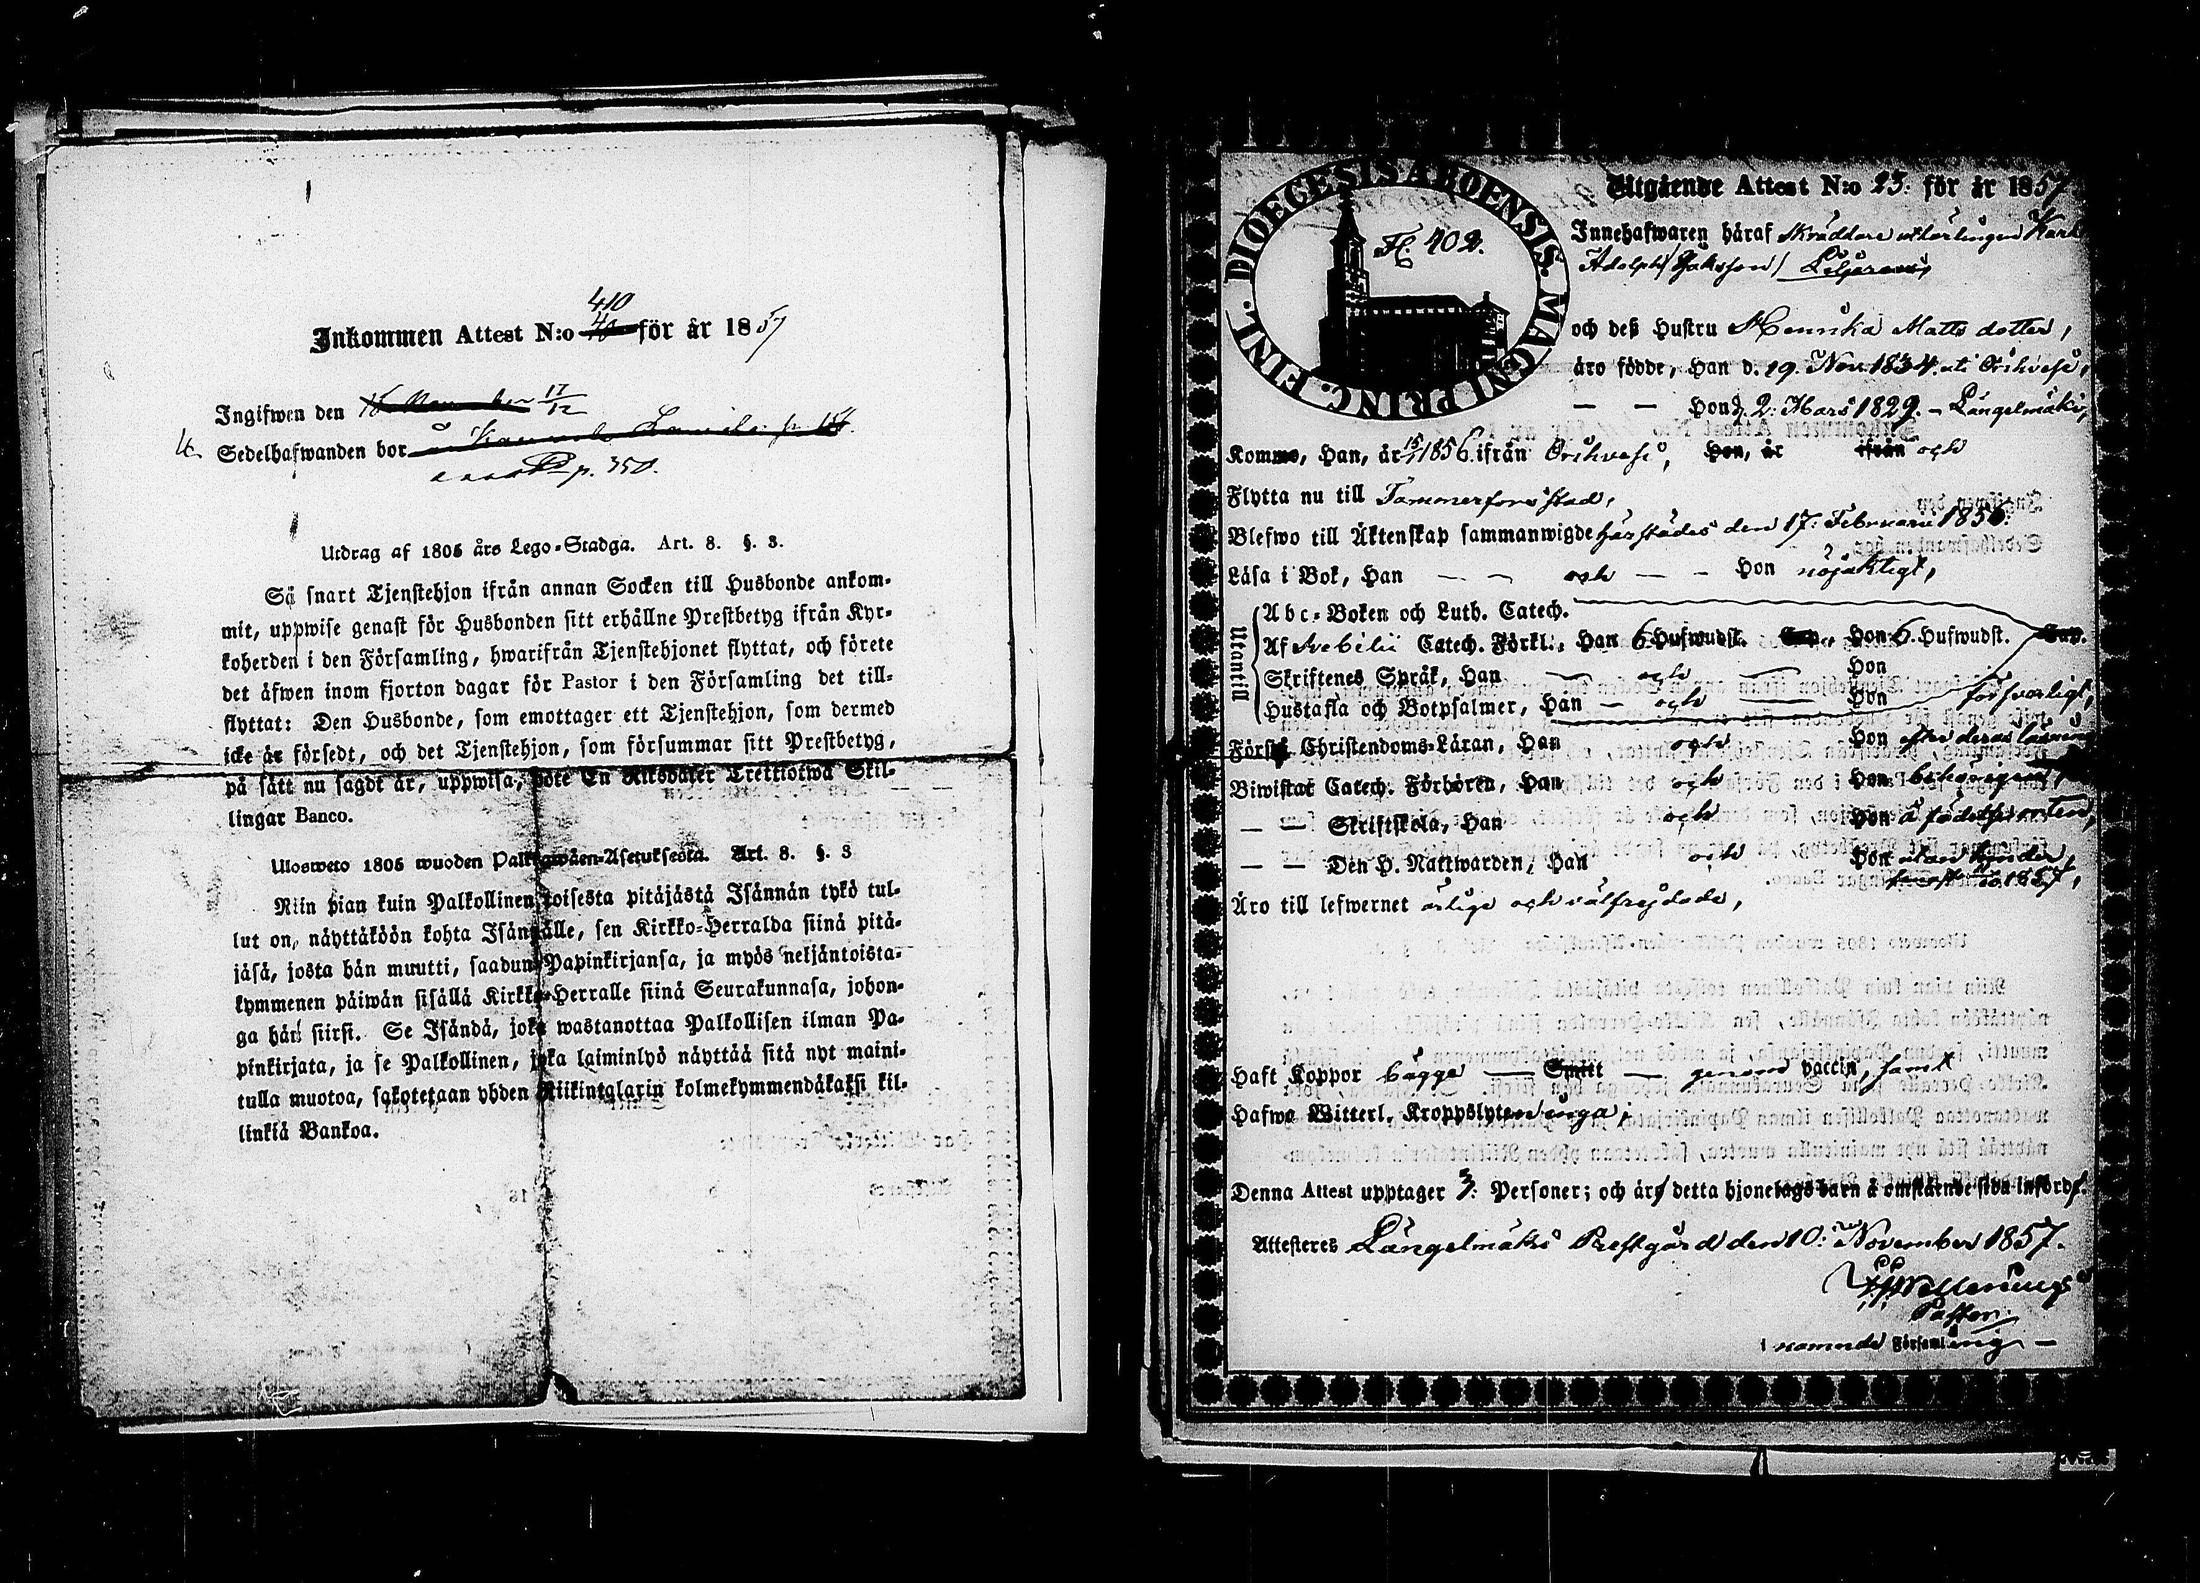 410
Inkommen Attest N:o 40 för år 1857
Ingifwen den 17/12
Sedelhafwanden bor
p. 350.
Utdrag af 1805 års Lego-Stadga. Art. 8. §. 3.
Så snart Tjenstehjon ifrån annan Socken till Husbonde ankom-
mit, uppwise genast för Husbonden sitt erhållne Prestbetyg ifrån Kyr-
koherden i den Församling, hwarifrån Tjenstehjonet flyttat, och förete
det äfwen inom fjorton dagar för Pastor i den Församling det till-
flyttat: Den Husbonde, som emottager ett Tjenstehjon, som dermed
icke är försedt, och det Tjenstehjon, som försummar sitt Prestbetyg,
på sätt nu sagdt är, uppwisa, böte En Riksdaler Trettiotwå Skil-
lingar Banco.
Ulosweto 1805 wuoden Palkkawäen-Asetuksesta. Art. 8. §. 3
Niin pian kuin Palkollinen toisesta pitäjästä Isännän tykö tul-
lut on, näyttäköön kohta Isännälle, sen Kirkko-Herralda siinä pitä-
jäsä, josta hän muutti, saadun Papinkirjansa, ja myös neljäntoista-
kymmenen päiwän sisällä Kirkko-Herralle siinä Seurakunnasa, johon-
ga hän siirsi. Se Isändä, joka wastanottaa Palkollisen ilman Pa-
pinkirjata, ja se Palkollinen, joka laiminlyö näyttää sitä nyt maini-
tulla muotoa, sakotetaan yhden Riikintalarin kolmekymmendäkaksi kil-
linkiä Bankoa.
DIOECESIS ABOENSIS. MAGNI PRINC. FINL.
Fl. 402.
Utgående Attest N:o 23. för år 1857
Innehafwaren häraf Skräddare utlärlingen Karl
Adolph
och deß Hustru Hennika Matts dotter,
äro födde, Han d. 19. Nov. 1834. uti Orihvesi,
— — Hon d. 2. Mars 1829. — Längelmäki,
Kommo, Han, år 15/11 1856 ifrån Orihvesi, Hon, år ifrån och
Flytta nu till Tammerfors stad,
Blefwo till Äktenskap sammanwigde härstädes den 17. Februarii 1856.
Läsa i Bok, Han — — och — — Hon nöjaktigt,
Utantill
Abc-Boken och Luth. Catech.
Af Svebilii Catech. Förkl., Han 6 Hufwudst. Cap., Hon 6. Hufwudst. Cap.
Skriftenes Språk, Han — och — Hon
Hustafla och Botpsalmer, Han — och — Hon försvarligt,
Förstå Christendoms-Läran, Han och Hon efter deras läsning
Biwistat Catech. Förhören, Han och Hon behörigen,
— — Skriftskola, Han och Hon å födelseorten,
— — Den H. Nattwarden, Han och Hon utan hinder
1857,
Äro till lefwernet ärlige och välfrejdade,
Haft Koppor bägge — Smitt — genom vaccin, samt
Hafwa Witterl. Kroppslyten inga;
Denna Attest upptager 3. Personer; och äro detta hjonelags barn å omstående sida införde.
Attesteres Längelmäki Prestgård den 10. November 1857.
Pastor
i nämnde Församling —